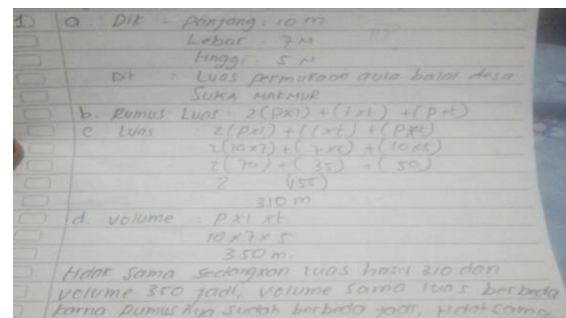 1 a. Dik : panjang : 10 m
Lebar : 7 M
tinggi : 5 M
Dit : Luas permukaan aula balai desa
SUKA MAKMUR
b. Rumus Luas : 2(pxl) + (lxt) + (pxt)
c Luas : 2(pxl) + (lxt) + (pxt)
2(10x7) + (7x5) + (10x5)
2(70) + (35) + (50)
2 (155)
310 m
d. volume : pxl xt
10 x 7 x 5
350 m.
tidak sama sedangkan luas hasil 310 dan
volume 350 jadi, volume sama luas berbeda
karna Rumus nya sudah berbeda jadi, tidak sama